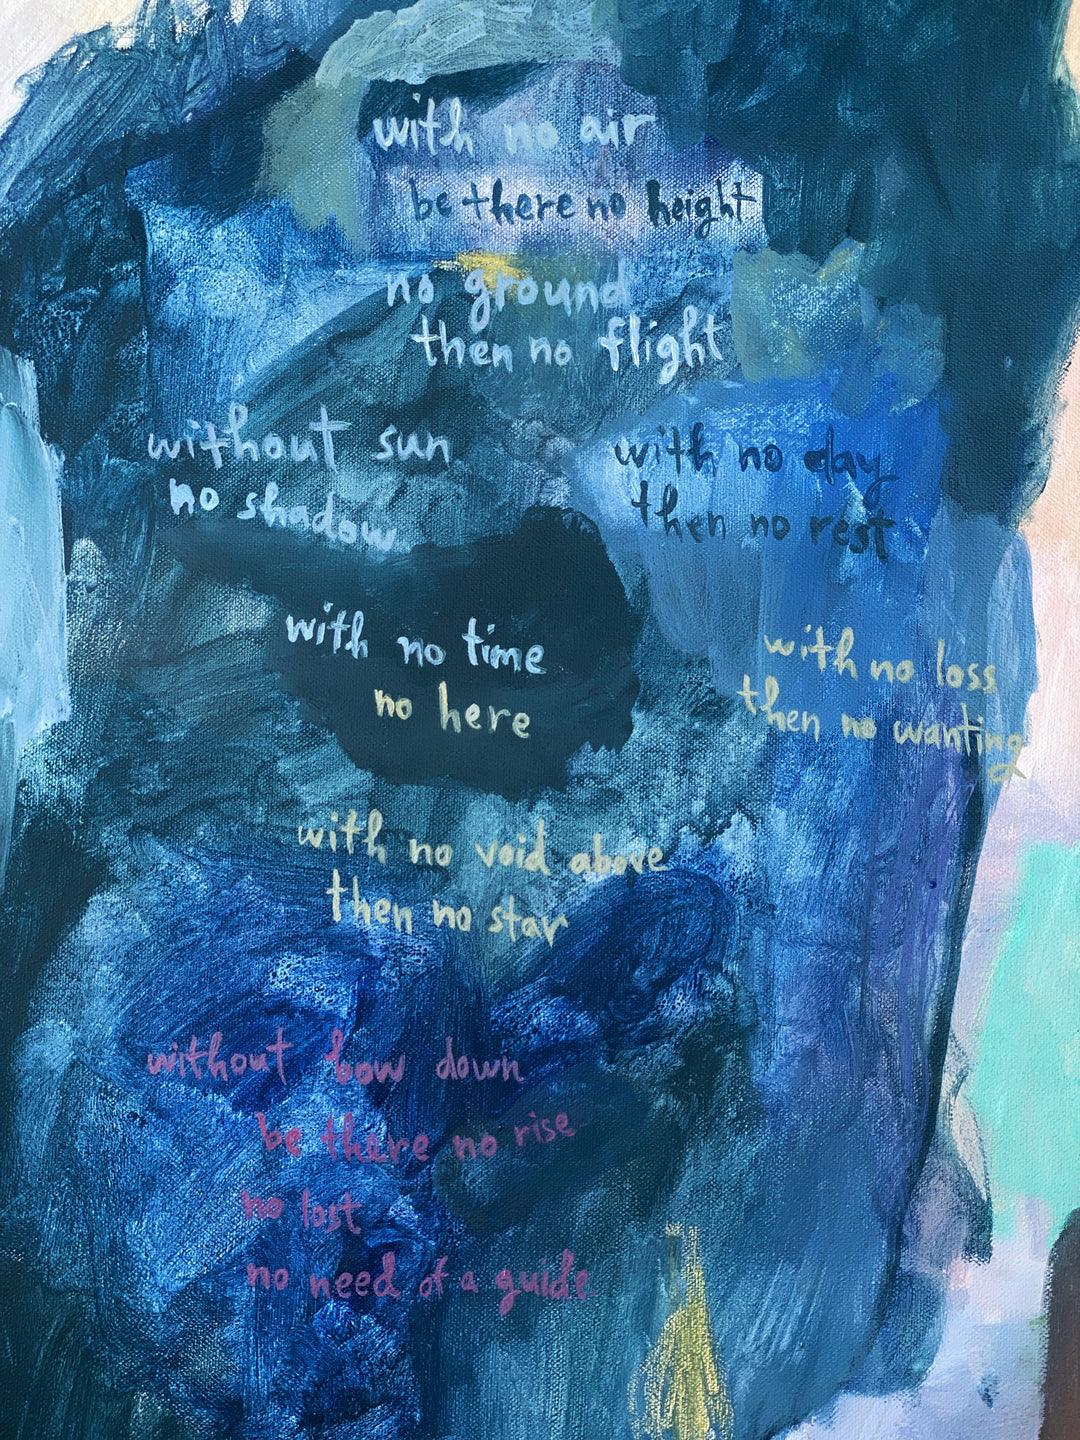 with no air
be there no height
no ground
then no flight
without sun
no shadow
with no day
then no rest
with no time
no here
with no loss
then no wanting
with no void above
then no star
without bow down
be there no rise
no lost
no need of a guide